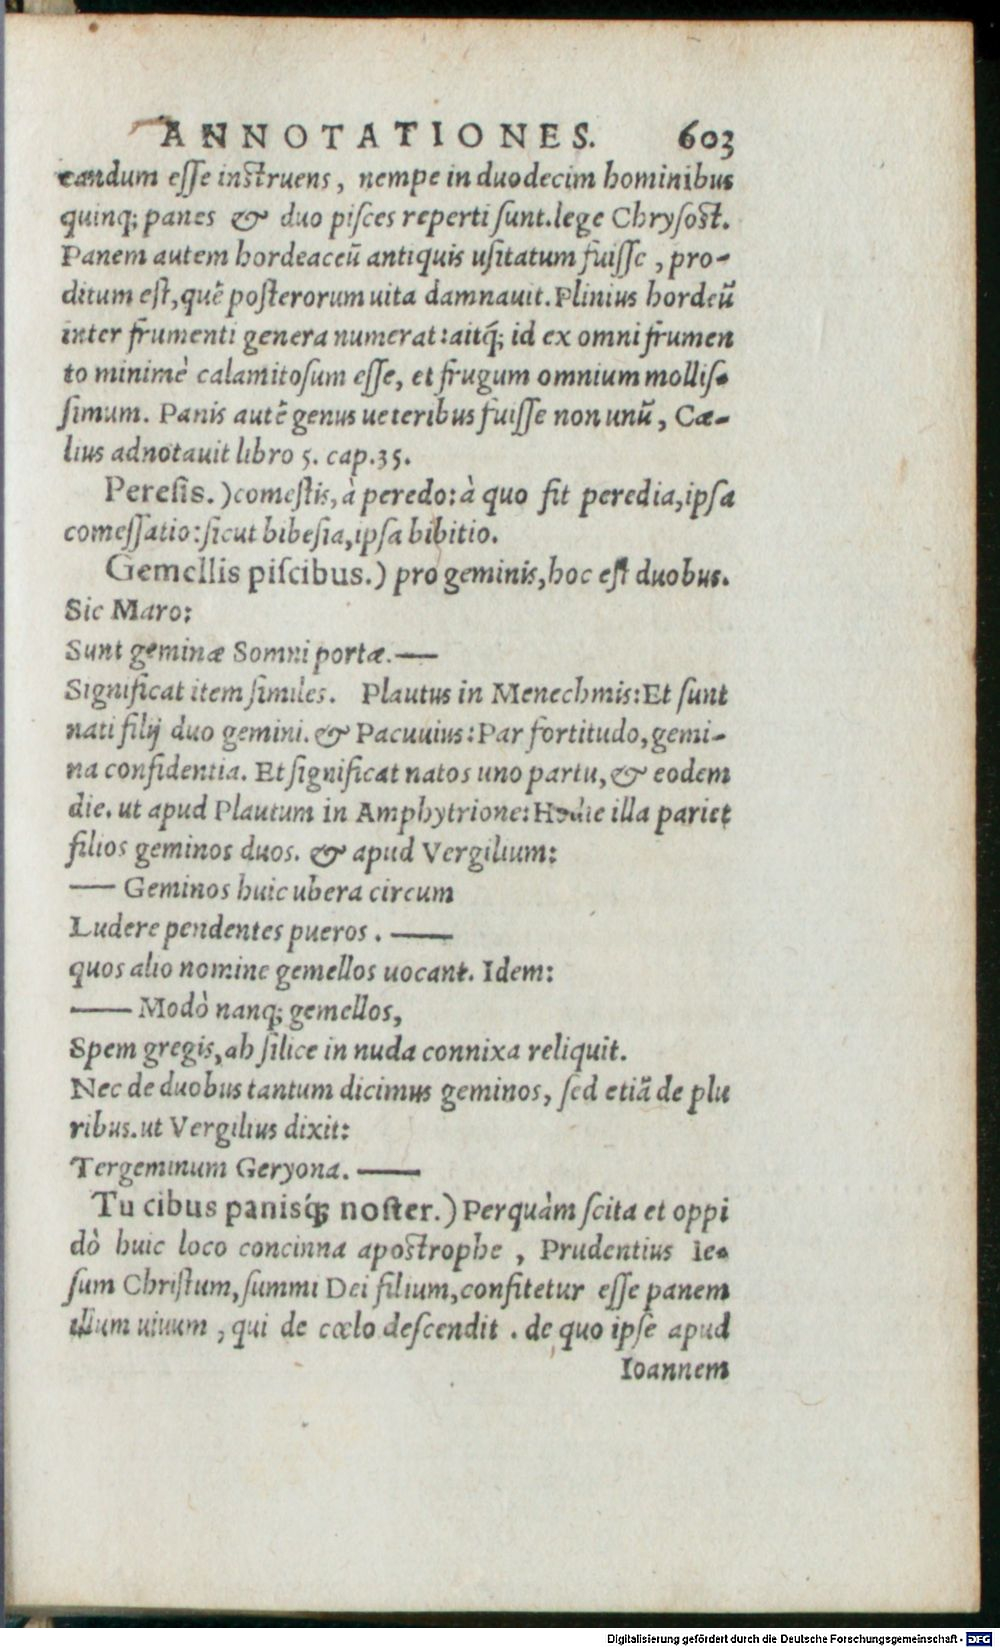 ANNOTATIONES. 603
candum eſſe inſtruens, nempe in duodecim hominibus
quinq; panes & duo piſces reperti ſunt. lege Chryſoſt.
Panem autem hordeaceũ antiquis uſitatum fuiſſe, pro-
ditum eſt, quẽ poſterorum uita damnauit. Plinius hordeũ
inter frumenti genera numerat: aitq́; id ex omni frumen
to minimè calamitoſum eſſe, et frugum omnium molliſ-
ſimum. Panis autẽ genus ueteribus fuiſſe non unũ, Cæ-
lius adnotauit libro 5. cap. 35.
Pereſis.) comeſtis, à peredo: à quo fit peredia, ipſa
comeſſatio: ſicut bibeſia, ipſa bibitio.
Gemellis piſcibus.) pro geminis, hoc eſt duobus.
Sic Maro:
Sunt geminæ Somni portæ. —
Significat item ſimiles. Plautus in Menechmis: Et ſunt
nati filij duo gemini. & Pacuuius: Par fortitudo, gemi-
na confidentia. Et ſignificat natos uno partu, & eodem
die. ut apud Plautum in Amphytrione: Hodie illa pariet
filios geminos duos. & apud Vergilium:
— Geminos huic ubera circum
Ludere pendentes pueros. —
quos alio nomine gemellos uocant. Idem:
— Modò nanq; gemellos,
Spem gregis, ah ſilice in nuda connixa reliquit.
Nec de duobus tantum dicimus geminos, ſed etiã de plu
ribus. ut Vergilius dixit:
Tergeminum Geryona. —
Tu cibus panisq́; noſter.) Perquàm ſcita et oppi
dò huic loco concinna apoſtrophe, Prudentius Ie-
ſum Chriſtum, ſummi Dei filium, confitetur eſſe panem
illum uiuum, qui de cœlo deſcendit. de quo ipſe apud
Ioannem
Digitalisierung gefördert durch die Deutsche Forschungsgemeinschaft - DFG